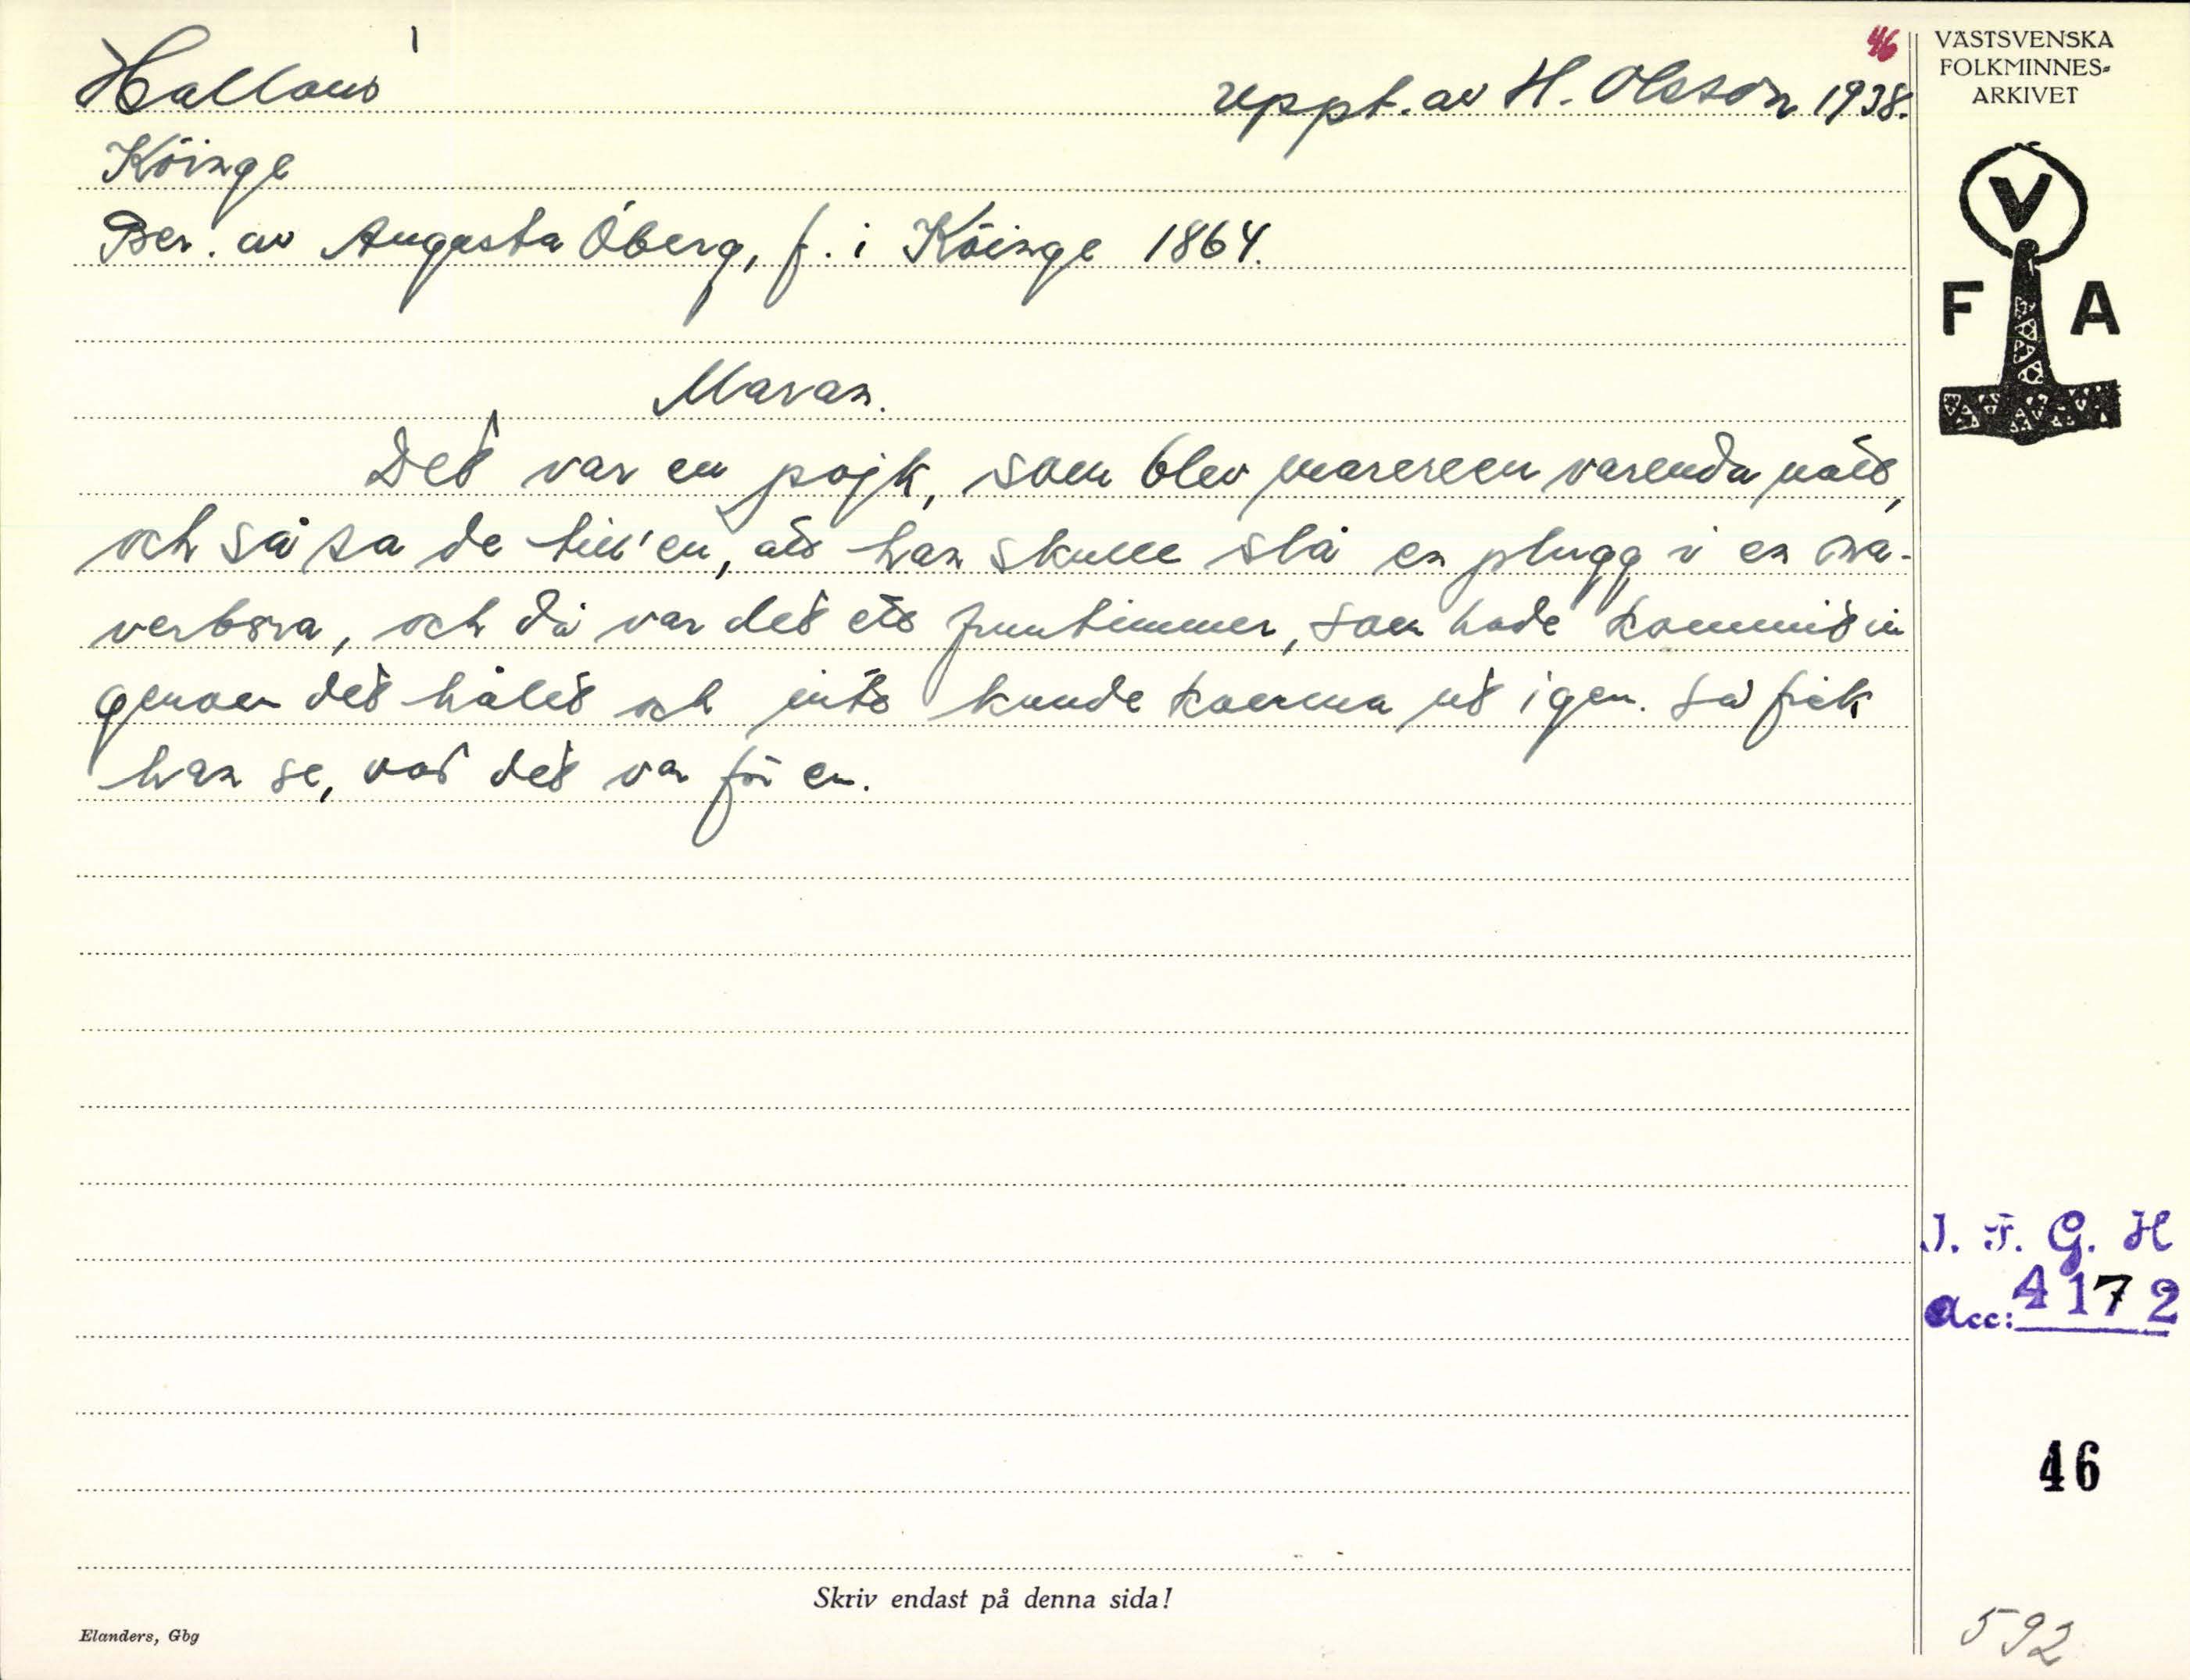 Halland
uppt. av H. Olsson 1938.
46
VÄSTSVENSKA
FOLKMINNES-
ARKIVET
Köinge
Ber. av Augusta Öberg, f. i Köinge 1864.
V
F A
Maran.
Det var en pojk, som blev mareren varenda natt,
och så sa de till'en, att han skulle slå en plugg i en na-
verbora, och då var det ett fruntimmer, som hade kommit in
genom det hålet och inte kunde komma ut igen. Så fick
han se, vad det var för en.
I. F. G. H
Acc: 4172
46
Skriv endast på denna sida!
Elanders, Gbg
592